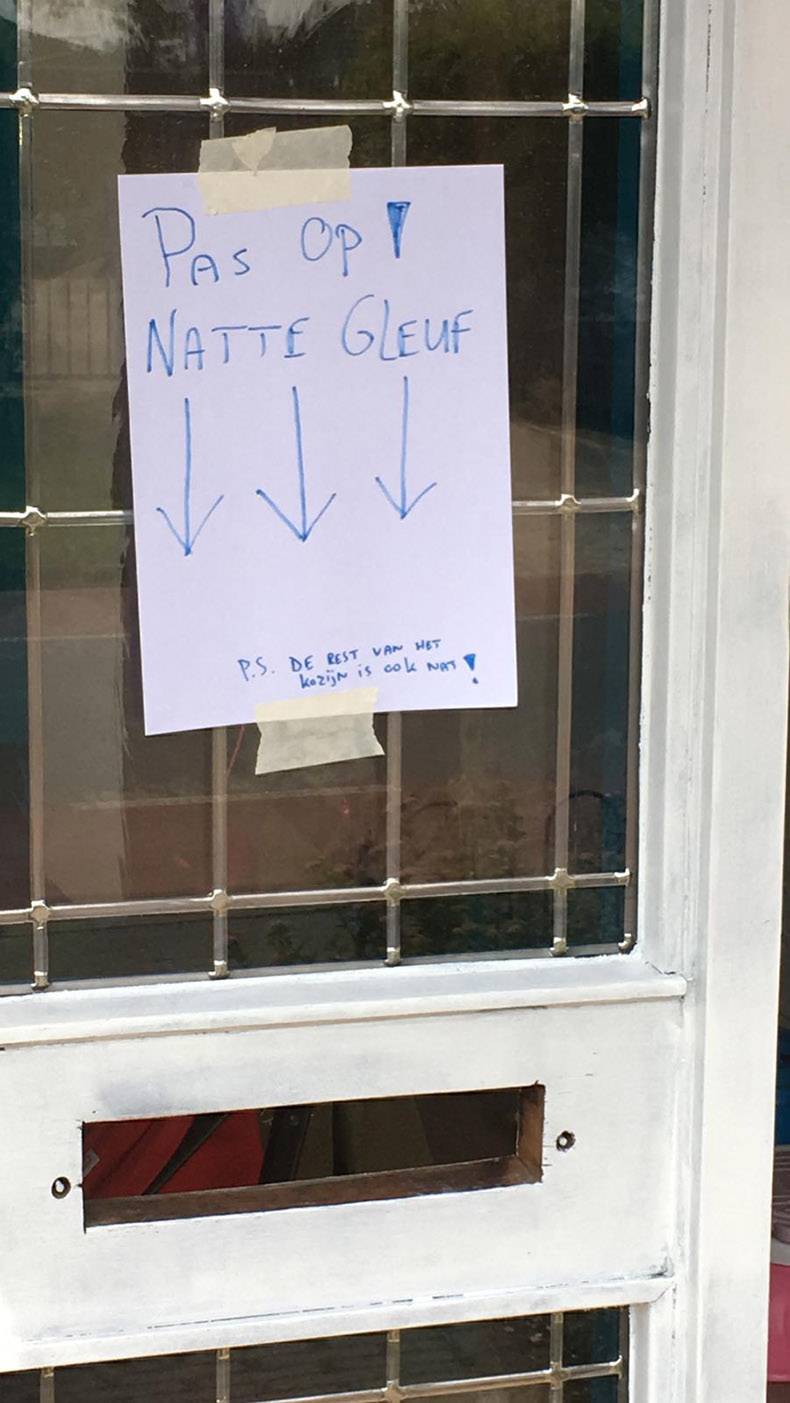 PAS OP!
NATTE GLEUF
P.S. DE REST VAN HET
kozijn is ook NAT!